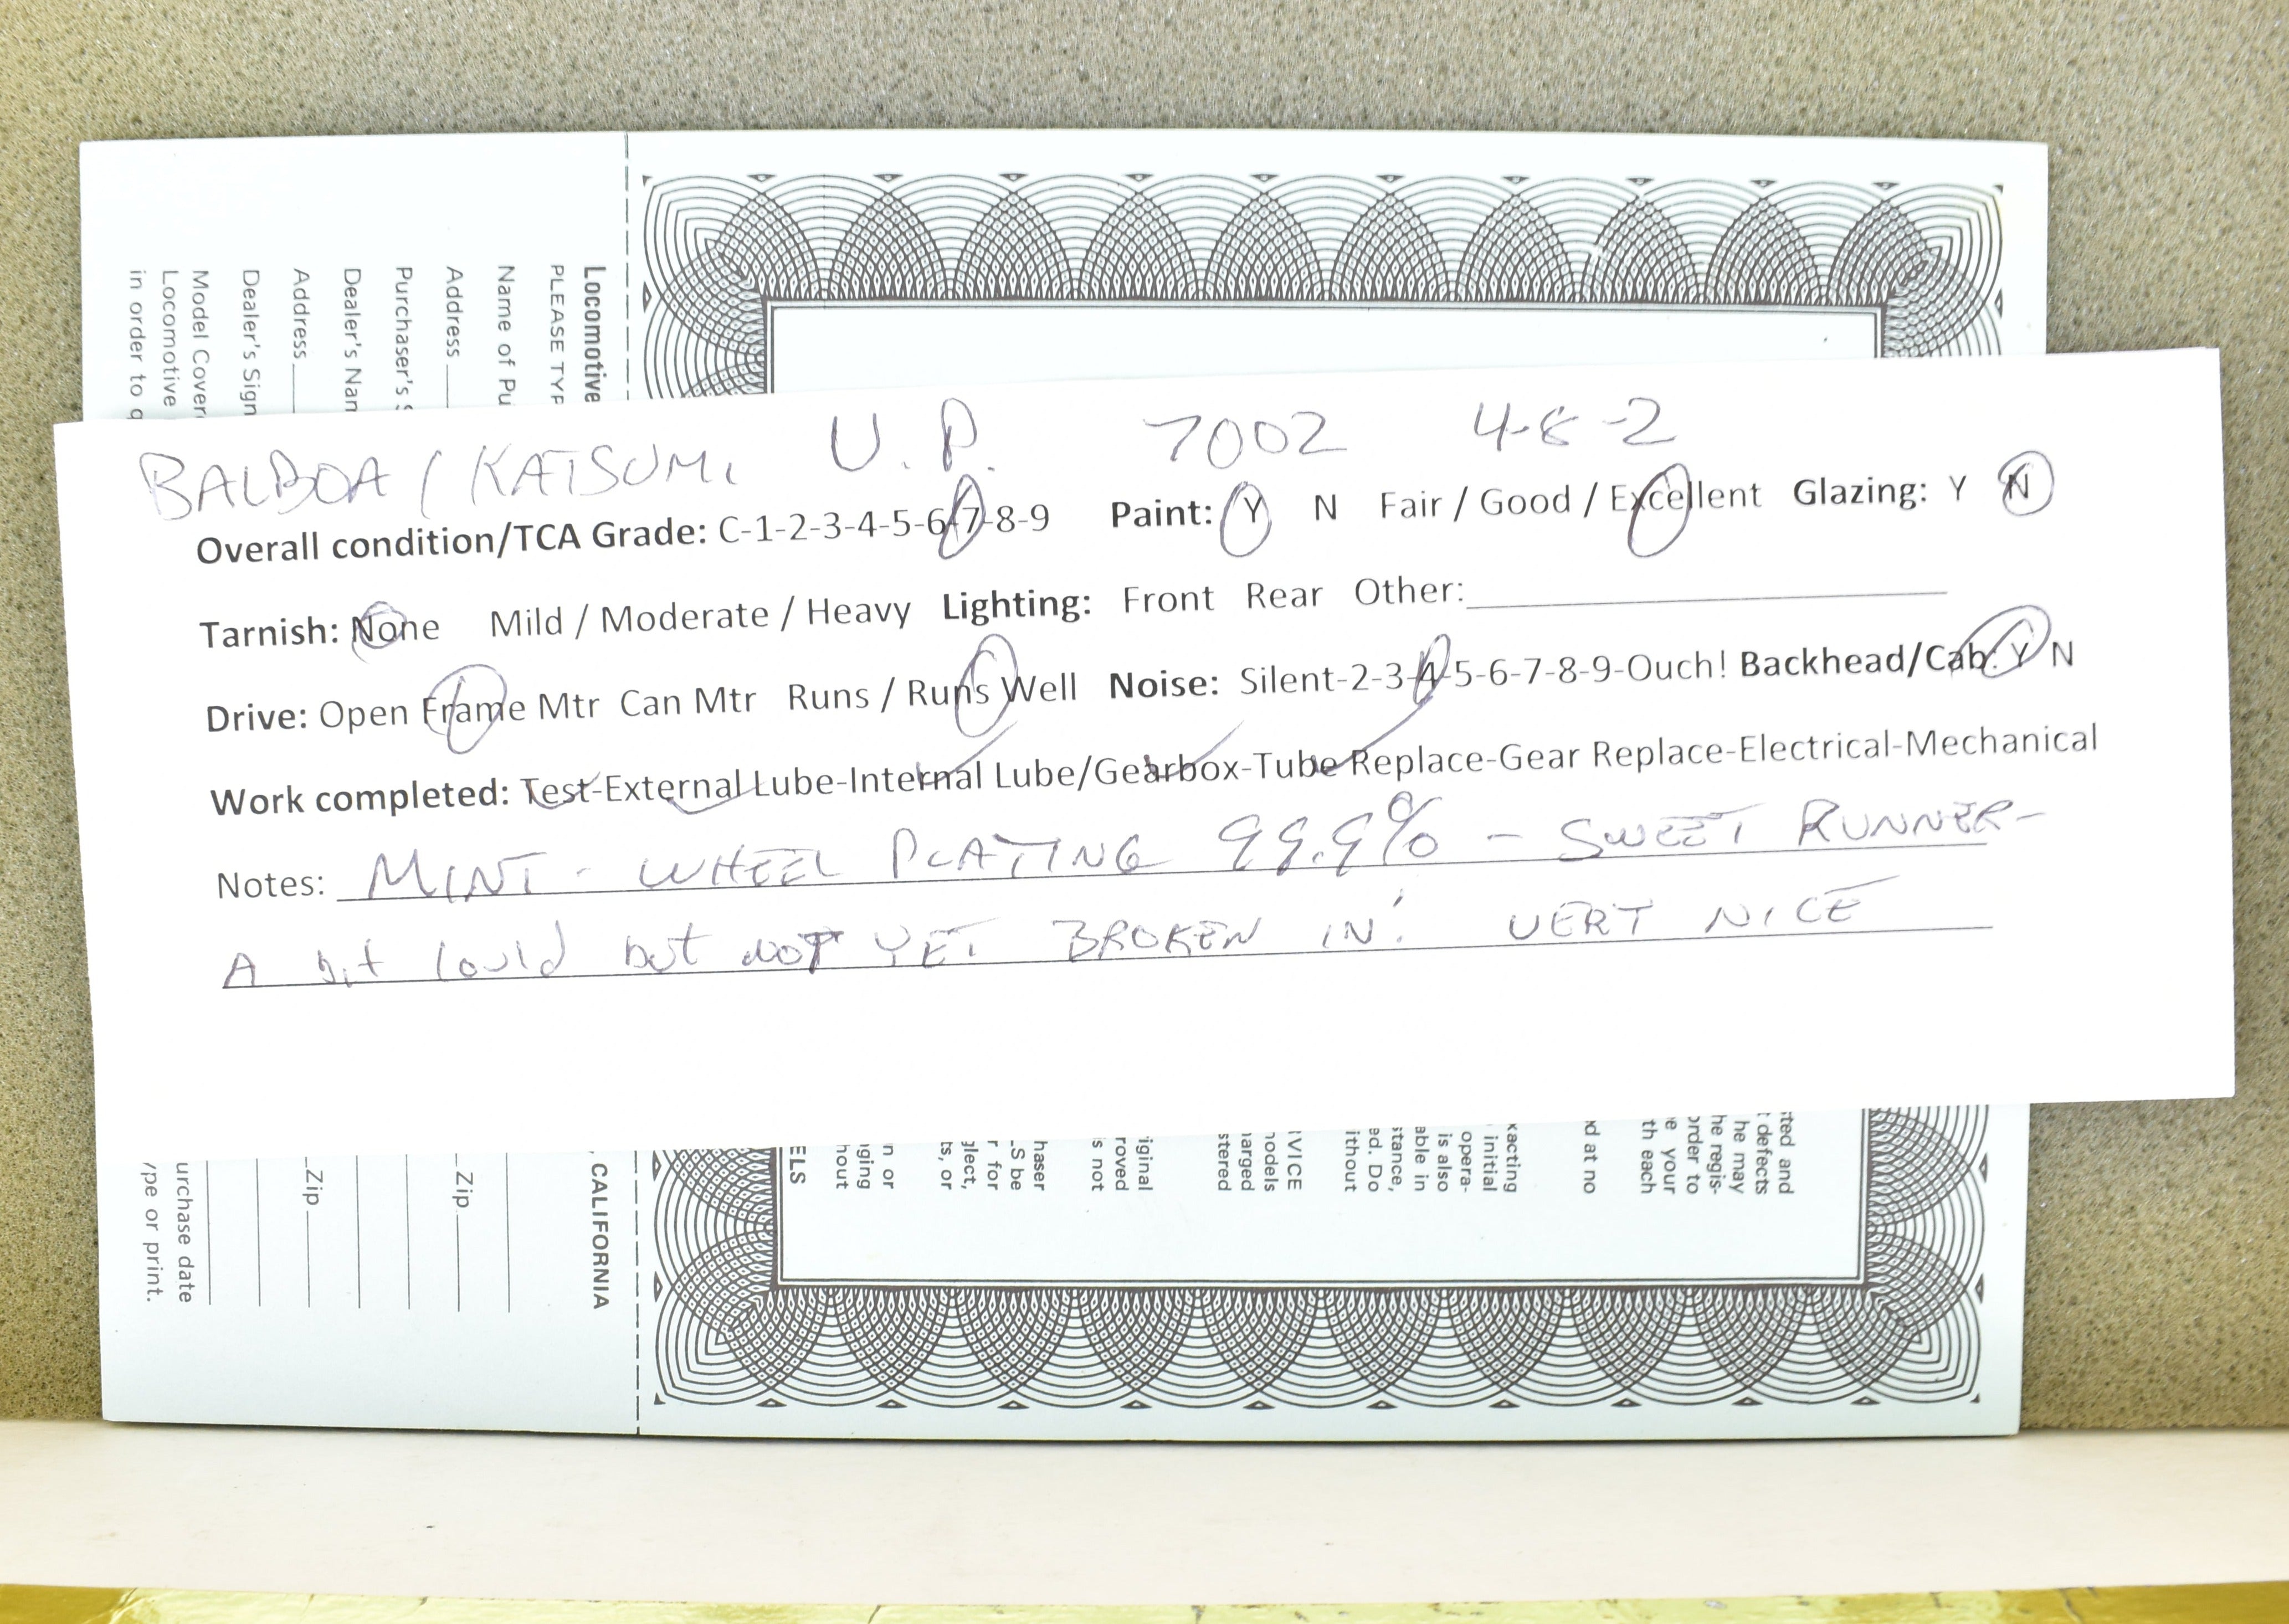 BALBOA / KATSUMI U.P. 7002 4-8-2
Overall condition/TCA Grade: C-1-2-3-4-5-6-7-8-9 Paint: Y N Fair / Good / Excellent Glazing: Y N
Tarnish: None Mild / Moderate / Heavy Lighting: Front Rear Other:
Drive: Open Frame Mtr Can Mtr Runs / Runs Well Noise: Silent-2-3-4-5-6-7-8-9-Ouch! Backhead/Cab: Y N
Work completed: Test-External Lube-Internal Lube/Gearbox-Tube Replace-Gear Replace-Electrical-Mechanical
Notes: MINT - WHEEL PLATING 99.9% - SWEET RUNNER-
A bit lould but NOT YET BROKEN IN! VERT NICE
Locomotive
PLEASE TYP
Name of Pu
Address
Purchaser's S
Dealer's Nan
Address
Dealer's Sign
Model Cover
Locomotive
in order to q
, CALIFORNIA
Zip
Zip
urchase date
ype or print.
ited and
t defects
he may
he regis-
order to
e your
th each
d at no
xacting
initial
opera-
is also
able in
stance,
ed. Do
ithout
RVICE
nodels
narged
stered
iginal
roved
s not
haser
LS be
r for
glect,
ts, or
n or
nging
hout
ELS